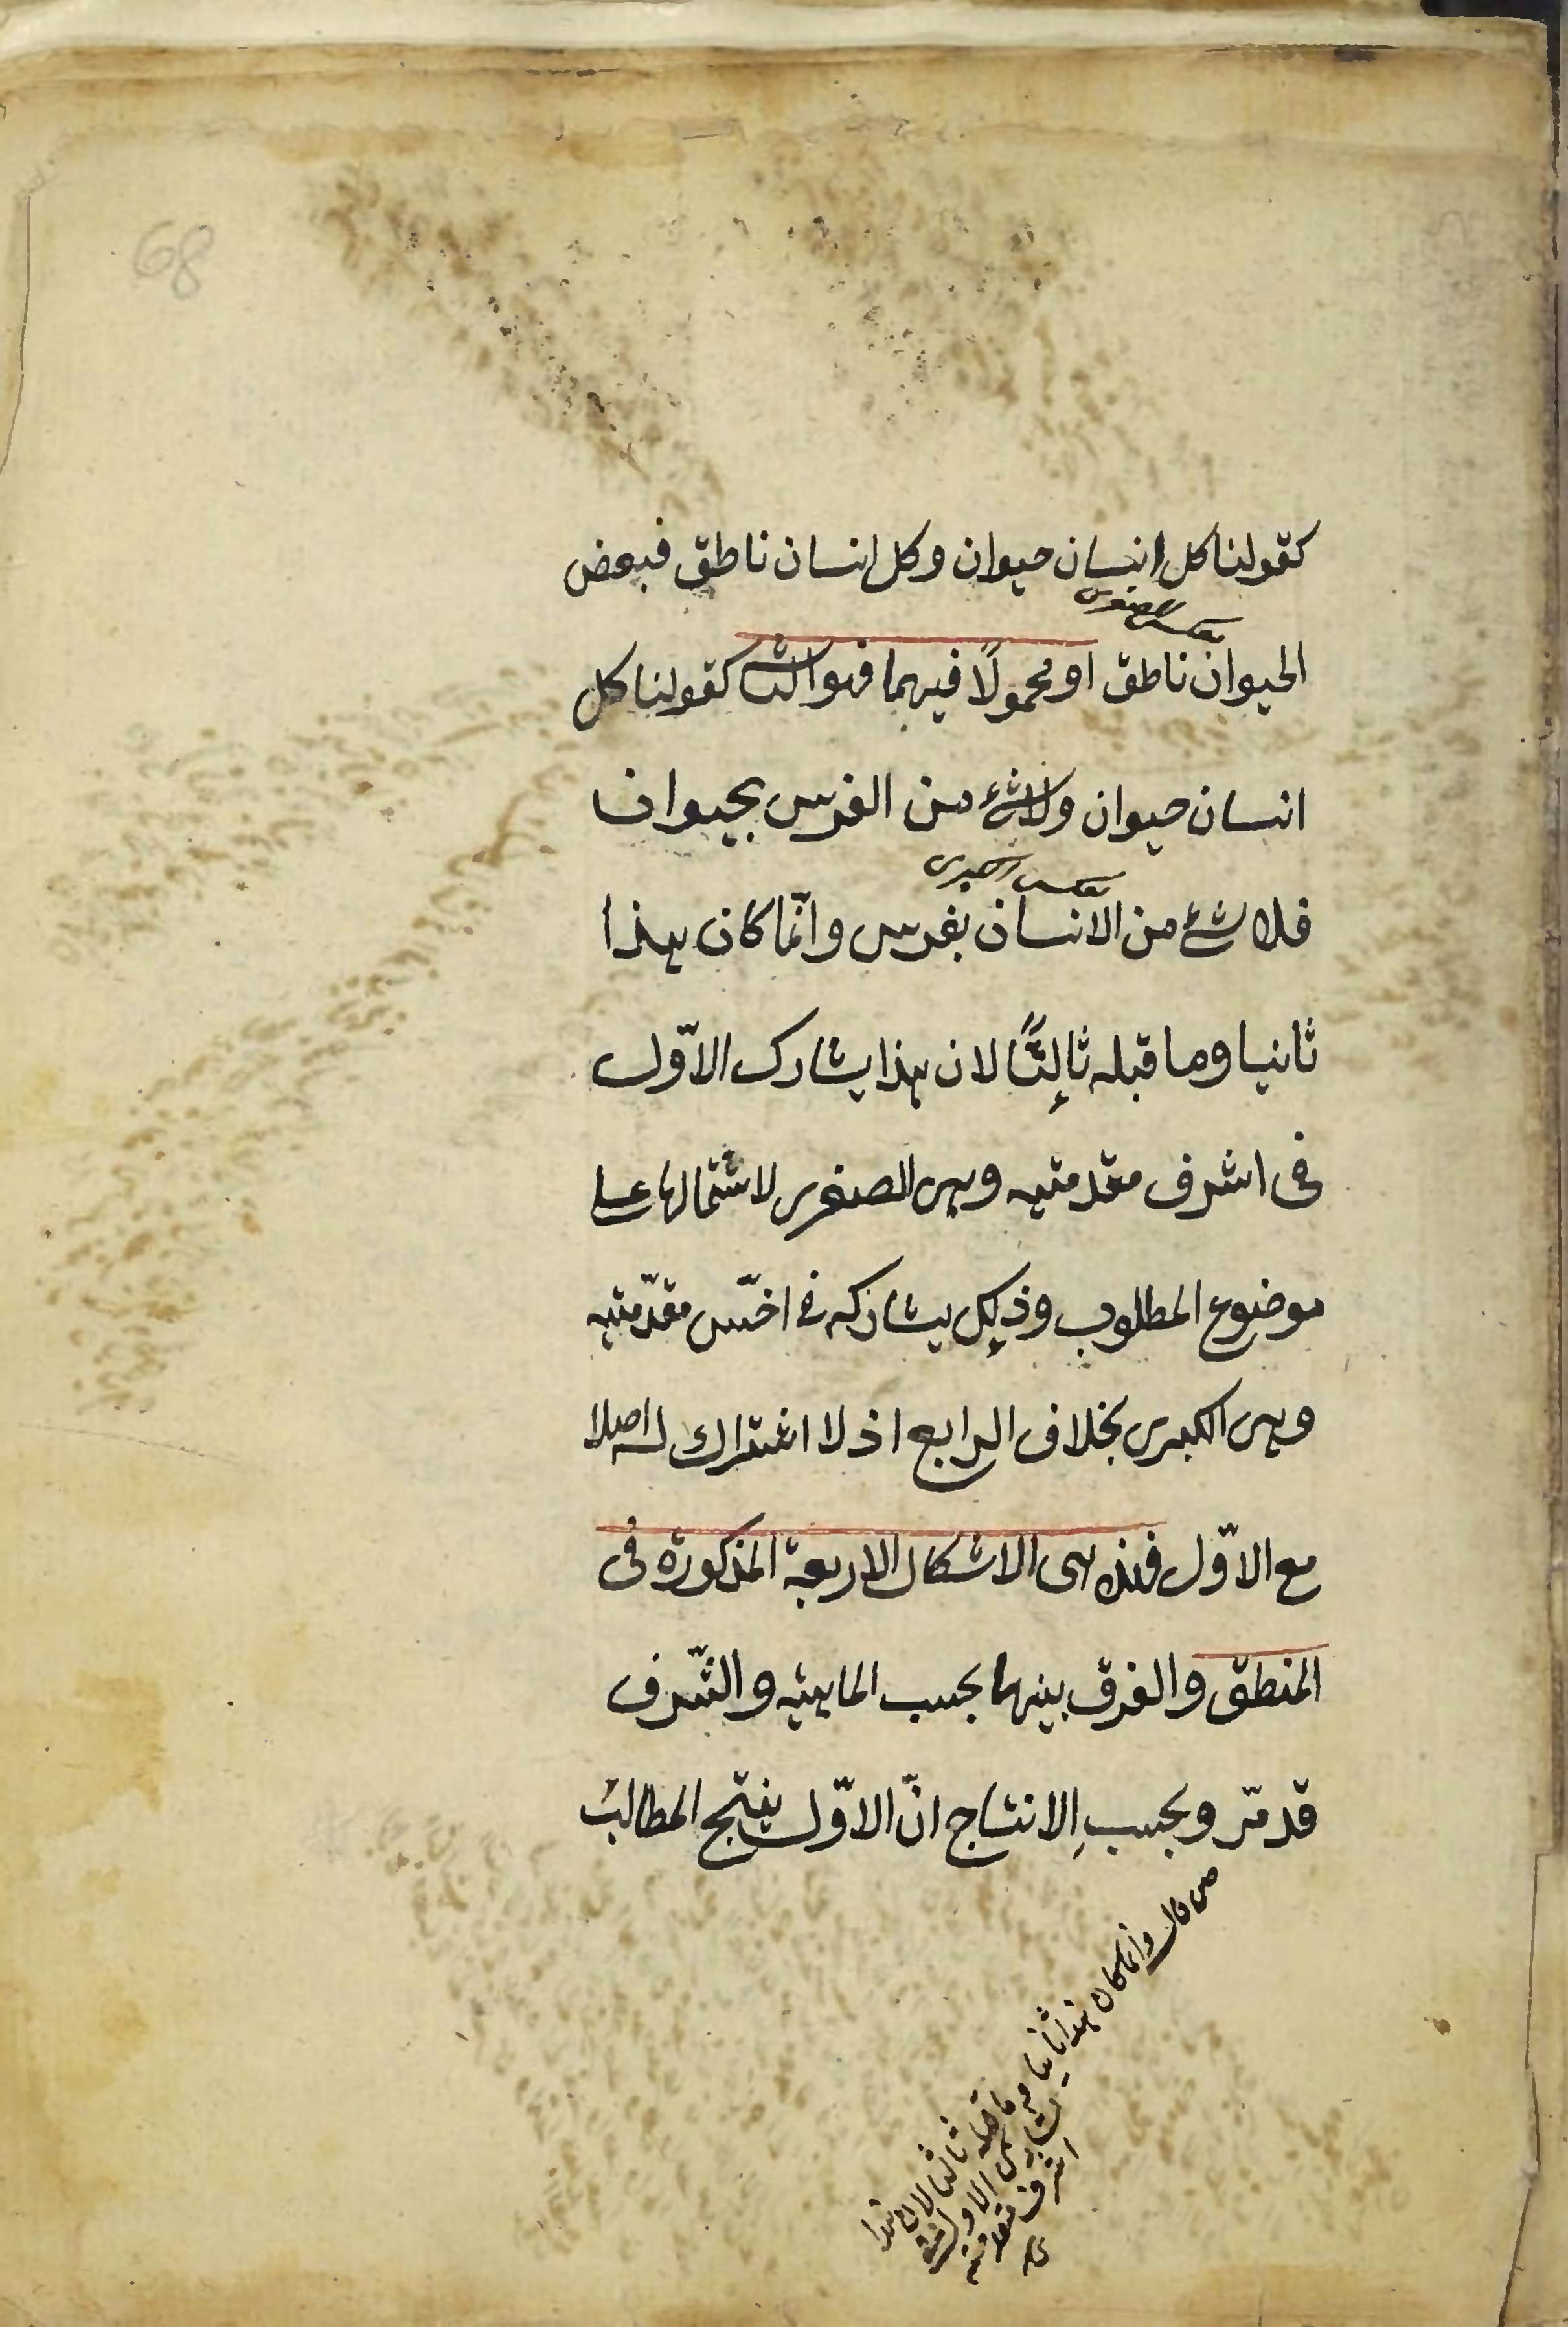 68
كقولنا كل انسان حيوان وكل انسان ناطق فبعض
بعكس الصغرى
الحيوان ناطق او محمولًا فيهما فهو الثانى كقولنا كل
انسان حيوان ولا شئ من الفرس بحيوان
بعكس الكبرى
فلا شئ من الانسان بفرس وانّما كان هذا
ثانيا وما قبله ثالثًا لان هذا يشارك الاوّل
فى اشرف مقدمتيه وهى الصغرى لاشتمالها على
موضوع المطلوب وذلك يشاركه فى اخسّ مقدّمتيه
وهى الكبرى بخلاف الرابع اذ لا اشتراك له اصلا
مع الاوّل فهذه هى الاشكال الاربعة المذكورة فى
المنطق والفرق بينهما بحسب الماهيّة والشّرف
قد مرّ وبحسبِ الانتاج انّ الاوّل ينتج المطالب
قال وانما كان هذا ثانيا وما قبله ثالثا لان هذا
يشارك الاول فى
اشرف مقدمتيه